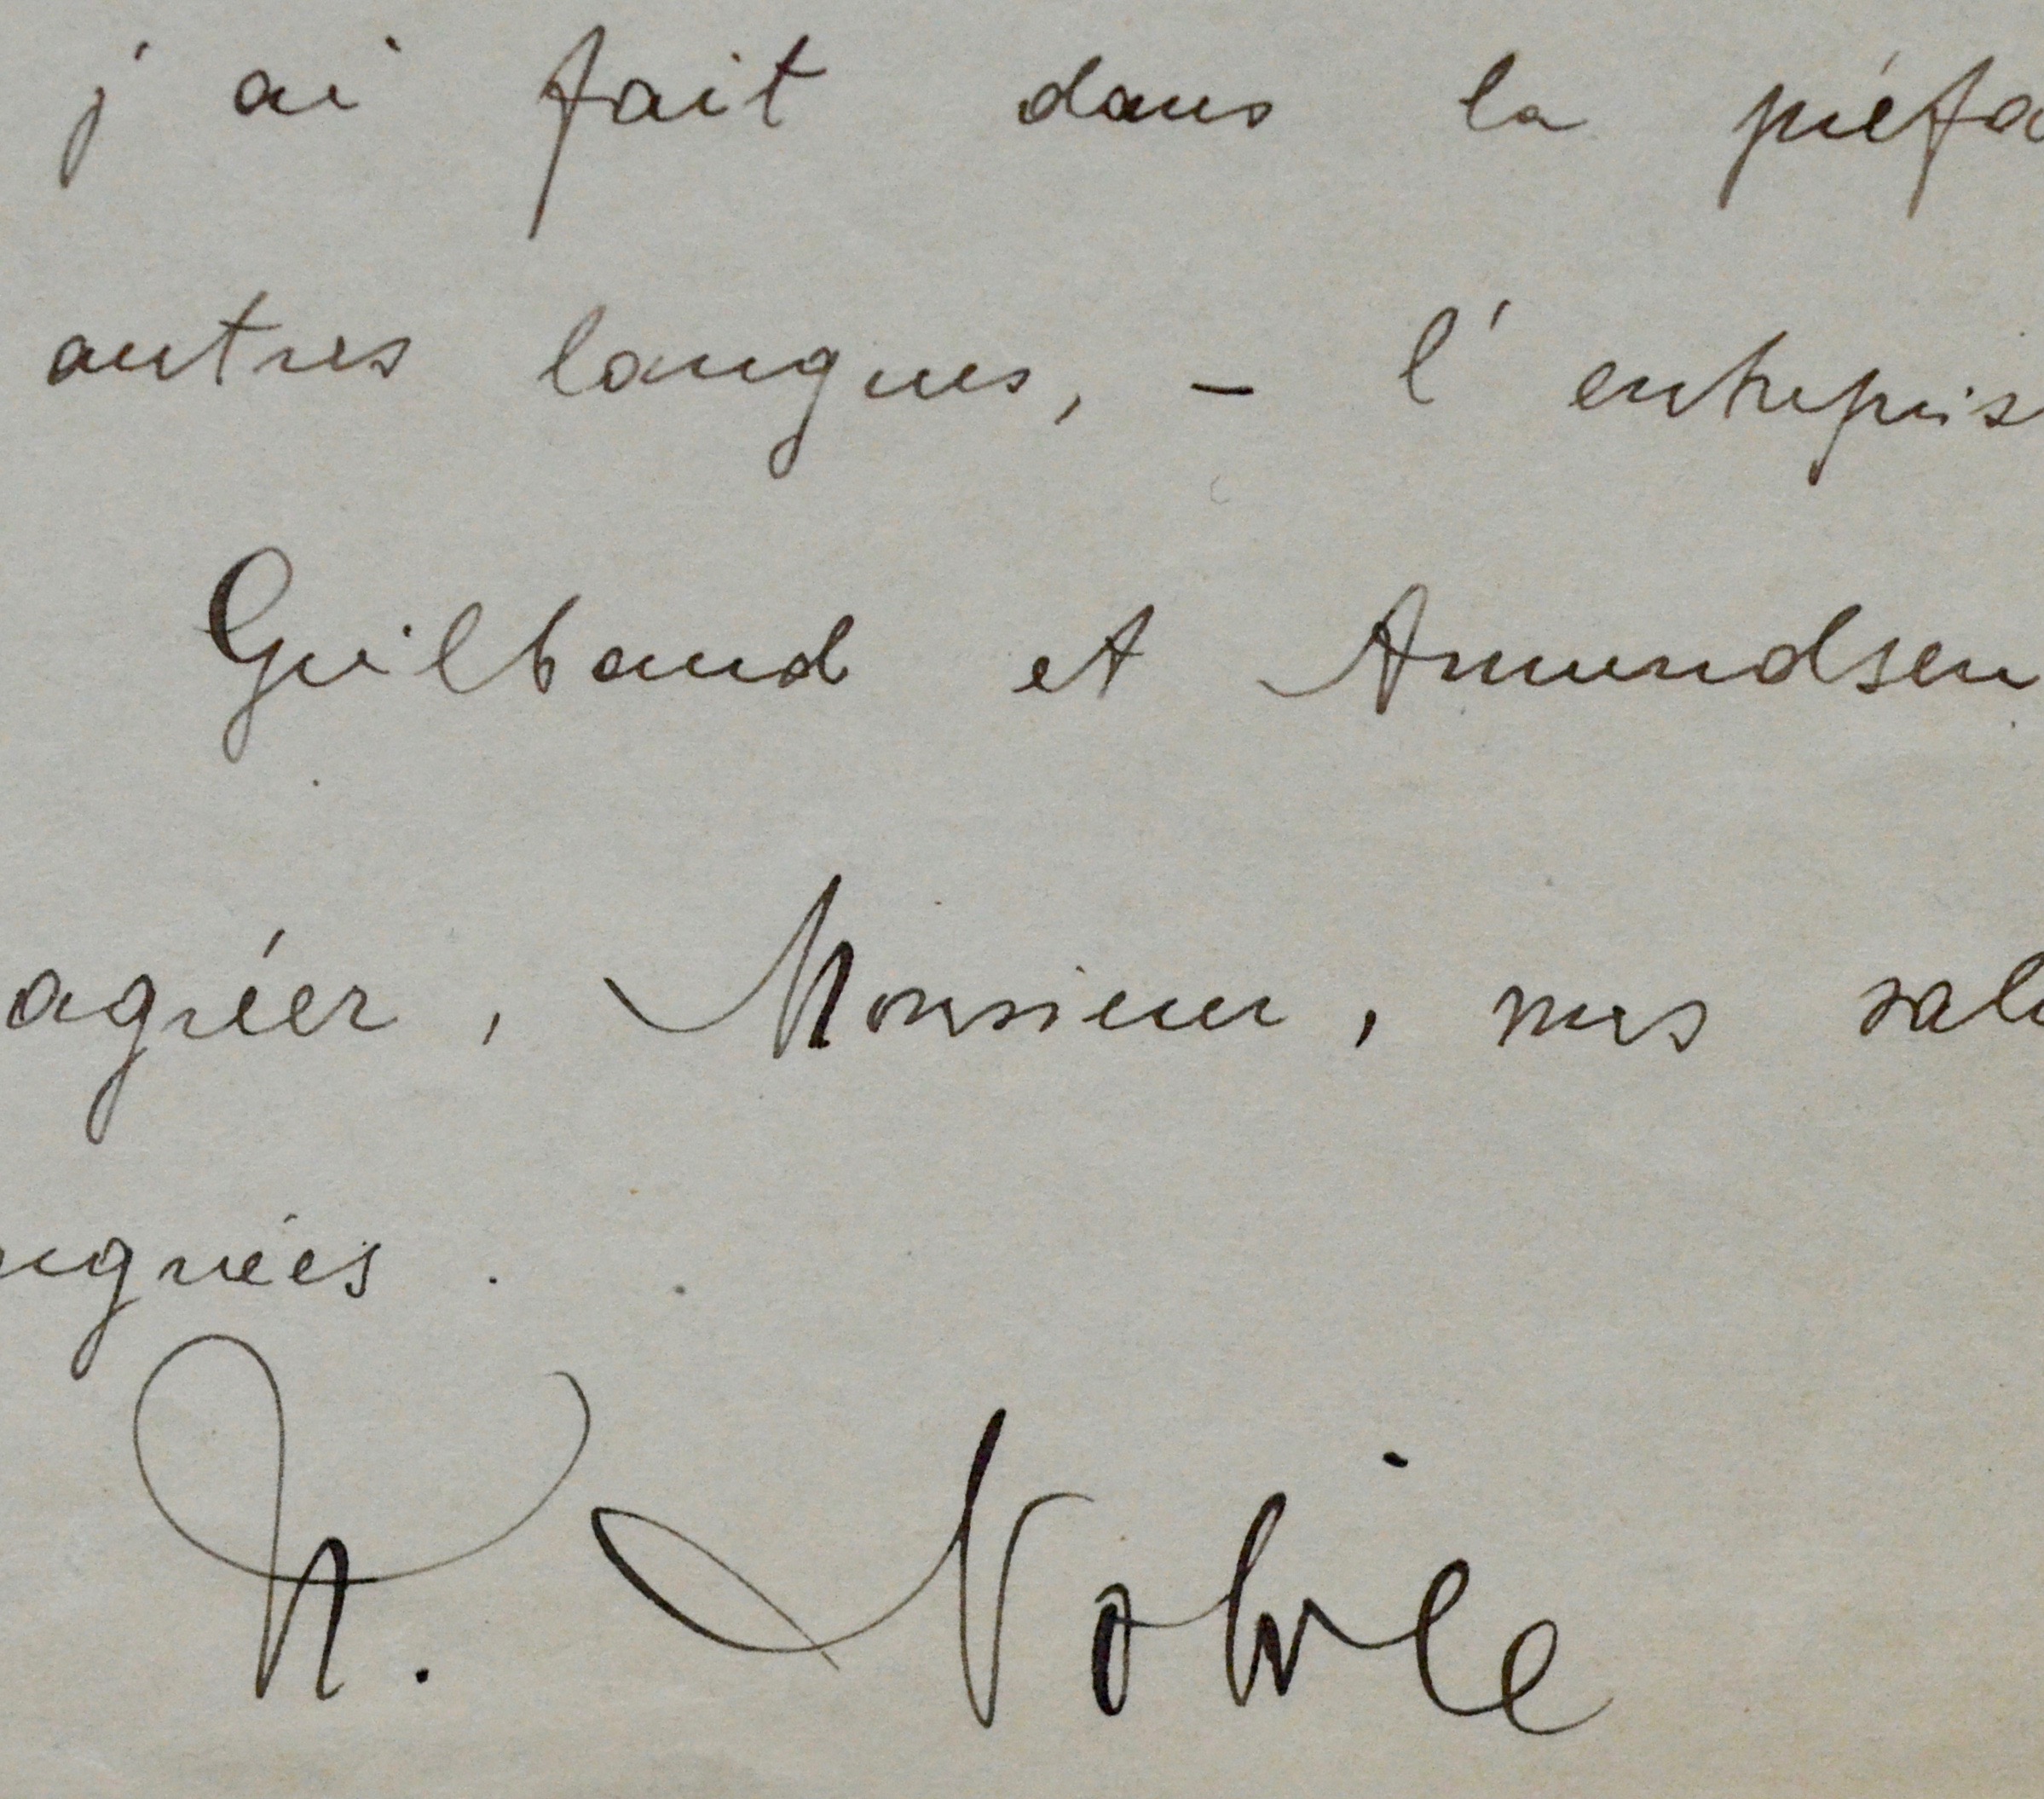 j'ai fait dans la préfa
autres langues, – l'entrepris
Guilbaud et Amundsen
agréer, Monsieur, mes salu
nguées.
U. Nobile